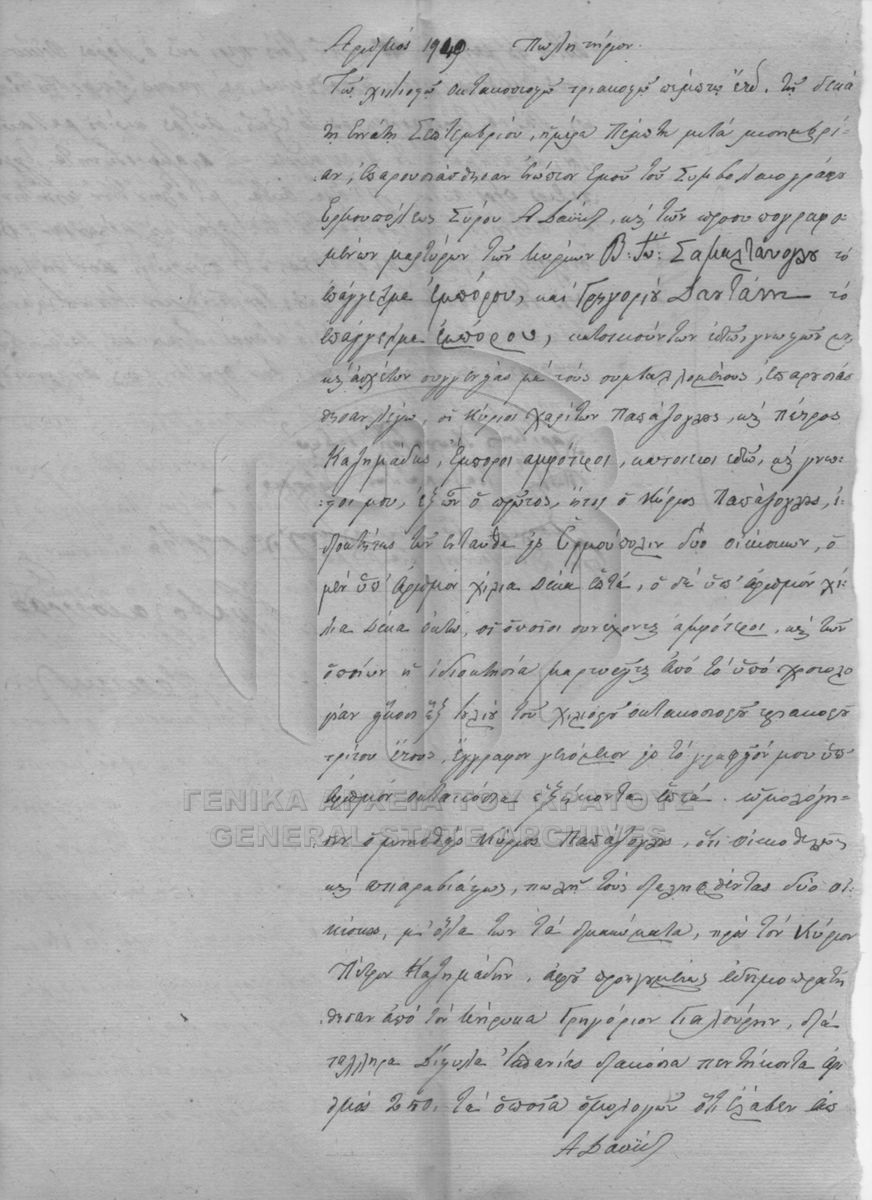 Αριθμός 1949 Πωλητήριον.
Τῷ χιλιοστῷ ὀκτακοσιοστῷ τριακοστῷ πέμπτῳ ἔτει, τῇ δεκά
τῃ ἐννάτῃ Σεπτεμβρίου, ἡμέρᾳ Πέμπτῃ μετὰ μεσημβρί-
αν, ἐπαρουσιάσθησαν ἐνώπιον ἐμοῦ τοῦ Συμβολαιογράφου
Ἑρμουπόλεως Σύρου καὶ τῶν προσυπογραφο-
μένων μαρτύρων τῶν Κυρίων Β. Σαμαλτάνογλου τὸ
ἐπάγγελμα ἐμπόρου, καὶ Γρηγορίου τὸ
ἐπάγγελμα ἐμπόρου, κατοικούντων ἐδῶ, γνωστῶν μοι
καὶ ἀσχέτων συγγενείας μὲ τοὺς συμβαλλομένους, ἐπαρουσιάσ
θησαν λέγω, οἱ Κύριοι Χαρίτων Παπάζογλους, καὶ Πέτρος
Καζημάδης, ἔμποροι ἀμφότεροι, κάτοικοι ἐδῶ, καὶ γνωσ-
τοί μου, ἐξ ὧν ὁ πρῶτος, ἤτοι ὁ Κύριος Παπάζογλους, ἰ-
διοκτήτης τῶν ἐνταῦθα εἰς Ἑρμούπολιν δύο οἰκίσκων, ὁ
μὲν ὑπ' ἀριθμὸν χίλια δέκα ἑπτά, ὁ δὲ ὑπ' ἀριθμὸν χί-
λια δέκα ὀκτώ, οἱ ὁποῖοι συνέχονται ἀμφότεροι, καὶ τῶν
ὁποίων ἡ ἰδιοκτησία μαρτυρεῖται ἀπὸ τὸ ὑπὸ χρονολο
γίαν εἴκοσι ἓξ τοῦ χιλιοστοῦ ὀκτακοσιοστοῦ τριακοστοῦ
τρίτου ἔτους, ἔγγραφον γενόμενον εἰς τὸ γραφεῖόν μου ὑπ'
ἀριθμὸν ὀκτακόσια ἑξήκοντα ἑπτά. ὡμολόγη-
σεν ὁ μνησθεὶς Κύριος Παπάζογλους, ὅτι οἰκειοθελῶς
καὶ ἀπαραβιάστως, πωλεῖ τοὺς διαληφθέντας δύο οἰ-
κίσκους, μὲ ὅλα των τὰ δικαιώματα, πρὸς τὸν Κύριον
Πέτρον Καζημάδην, ἀφοῦ προηγουμένως ἐδημοπρατή
θησαν ἀπὸ τὸν κήρυκα Γρηγόριον Γιαλούρην, διὰ
τάλληρα Δίστηλα Ἱσπανίας διακόσια πεντήκοντα ἀρι
θμός 250. τὰ ὁποῖα ὁμολογῶν ὅτι ἔλαβεν
ΓΕΝΙΚΑ ΑΡΧΕΙΑ ΤΟΥ ΚΡΑΤΟΥΣ
GENERAL STATE ARCHIVES